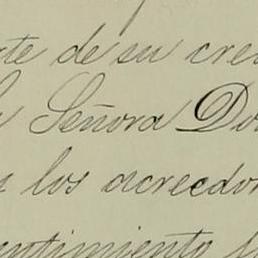 rte de su cre
Señora Do
los acreedor
entimiento